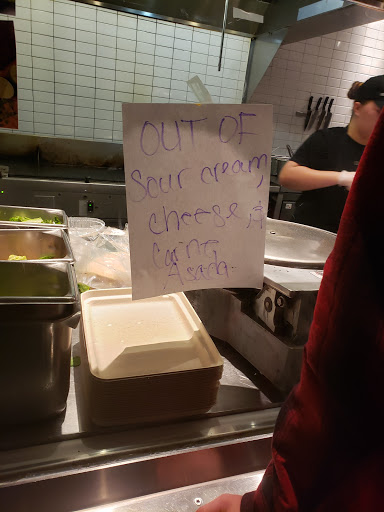 OUT OF
Sour cream,
cheese, &
Carne
Asada.